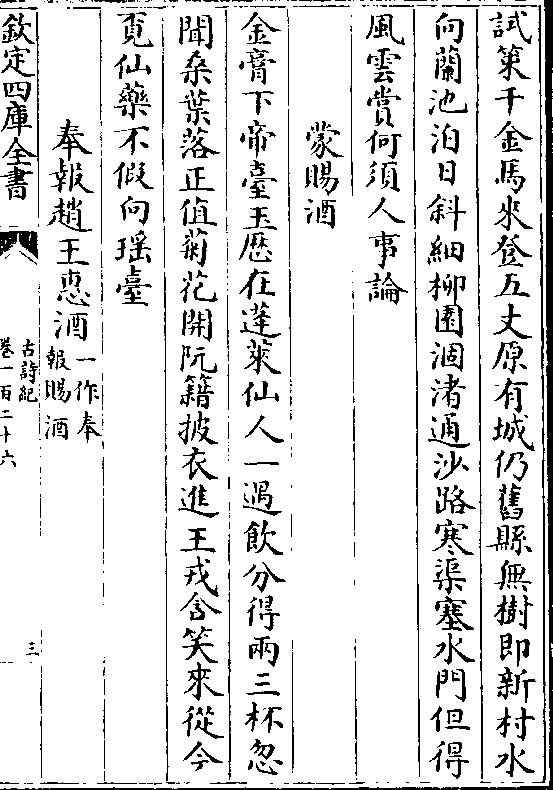 試策千金馬來登五丈原有城仍舊縣無樹即新村水
向蘭池泊日斜細柳園涸渚通沙路寒渠塞水門但得
風雲賞何須人事論
蒙賜酒
金膏下帝臺玉歴在蓬萊仙人一遇飲分得兩三杯忽
聞桑葉落正值菊花開阮籍披衣進王戎含笑來從今
覓仙藥不假向瑶臺
奉報趙王惠酒一作奉
報賜酒
欽定四庫全書
古詩紀
卷一百二十六
三